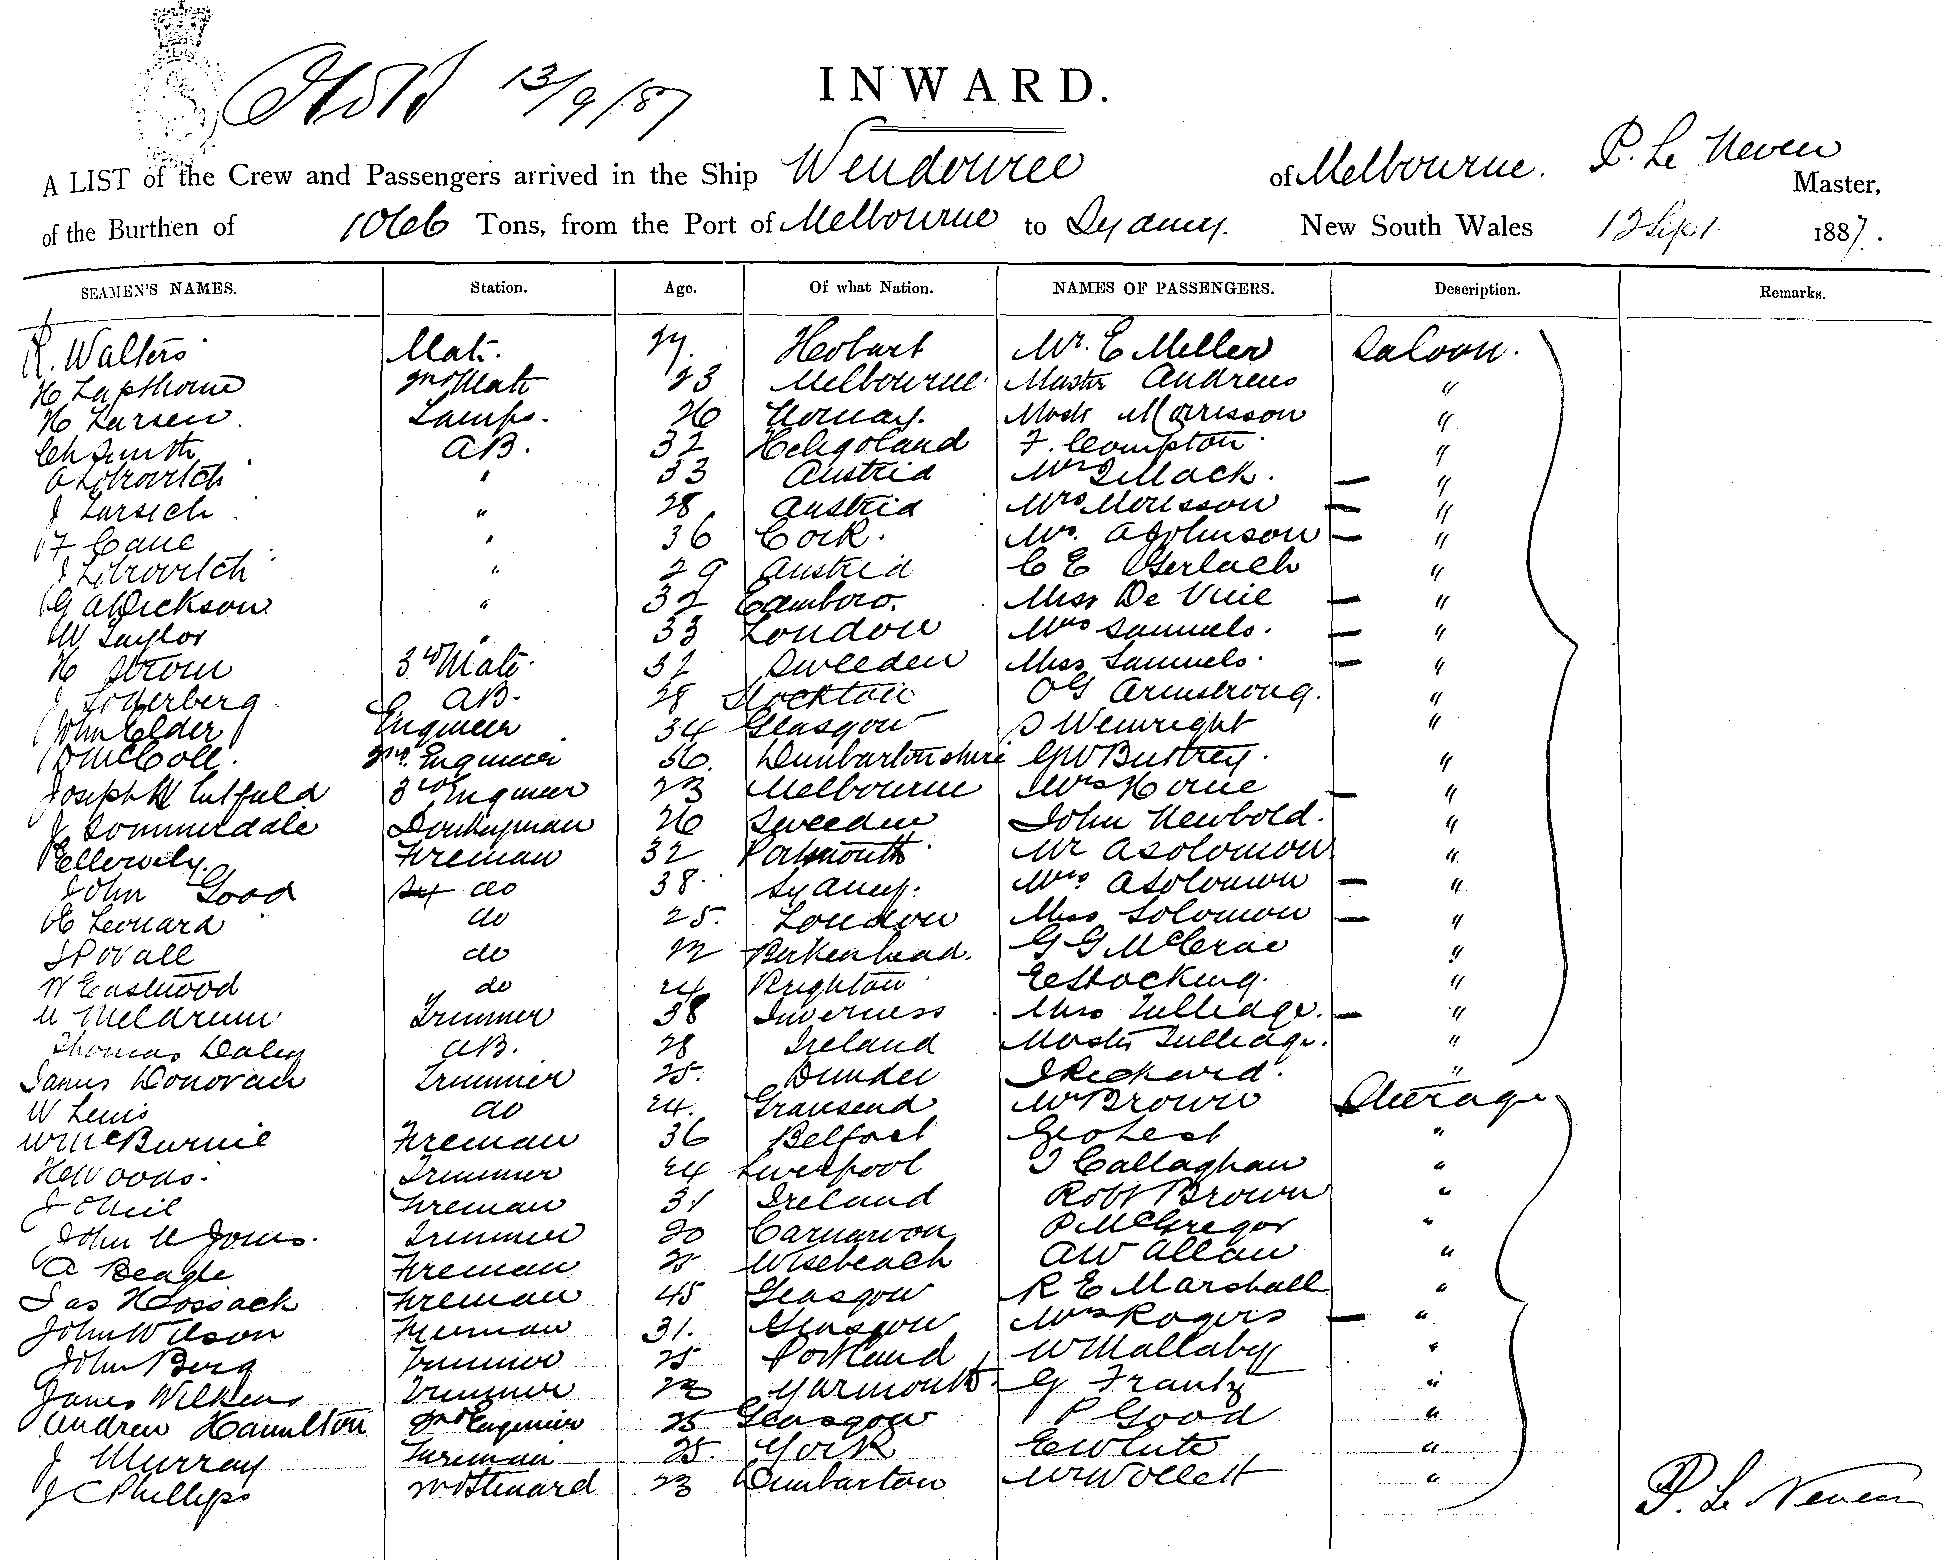 13/9/87
INWARD.
A LIST of the Crew and Passengers arrived in the Ship Wendouree of Melbourne. P. Le Neven Master,
of the Burthen of 1066 Tons, from the Port of Melbourne to Sydney. New South Wales 12 Sept 1887.
SEAMEN'S NAMES. Station. Age. Of what Nation. NAMES OF PASSENGERS. Description. Remarks.
R. Walters Mate. 27. Hobart Mr. E Miller Saloon.
H Lapthorne 2nd Mate 23 Melbourne Master Andrews "
H Larsen. Lamps. 26 Norway. Mast Morrisson "
Ch Smith AB. 32 Heligoland F. Compton. "
" 33 Austria Mrs Mack. — "
J Larsich " 28 Austria Mrs Morisson — "
F Cane " 36 Cork. Mrs. A Johnson — "
" 29 Austria C E Gerlach "
G A Dickson " 32 Miss De Vine — "
W Taylor " 33 London Mrs Samuels. — "
H Strom 3rd Mate. 32 Sweeden Miss Samuels. — "
J Soderberg AB. 28 O G Armstrong. "
John Elder Engineer 34 Glasgow S Wenwright "
D McColl. 2nd. Engineer 36. Dunbartonshire "
Joseph H 3rd Engineer 23 Melbourne Mrs Horne — "
J Sommerdale Donkeyman 26 Sweeden John Newbold. "
Fireman 32 Portsmouth Mr A Solomon "
John Good do 38. Sydney. Mrs A Solomon — "
H Leonard do 25. London Miss Solomon — "
J Povall do 22 Berkenhead. G G McCrae "
W Eastwood do 24 Brighton E Stocking. "
Meldrum Trimmer 38 Inverness Miss Tulledge. — "
Thomas Daley AB. 28 Ireland Master Tulledge. "
James Donovan Trimmer 25. Dundee J Rickard. "
W Lewis do 24. Gravsend W Brown Steerage
W McBurnie Fireman 36 Belfast Geo Lest "
H Woods. Trimmer 24 Liverpool J Callaghan "
J ONeil Fireman 31 Ireland Robt Brown "
John W Jones. Trimmer 20 Carnarvon P McGregor "
A Beagle Fireman 25 Wisebeach A W Allan "
Jas Hossack Fireman 45 Glasgow R E Marshall "
John Wilson Fireman 31. Glasgow Mrs Rogers — "
John Berg Trimmer 25 Portland W Mallaby "
James Wilkens Trimmer 22 Yarmouth G Frantz "
Andrew Hamilton 2nd Engineer 25 Glasgow P Good "
J Murray Fireman 25. York E White "
J C Phillips Steward 23 Dunbarton W Wollett "
P. Le Neven